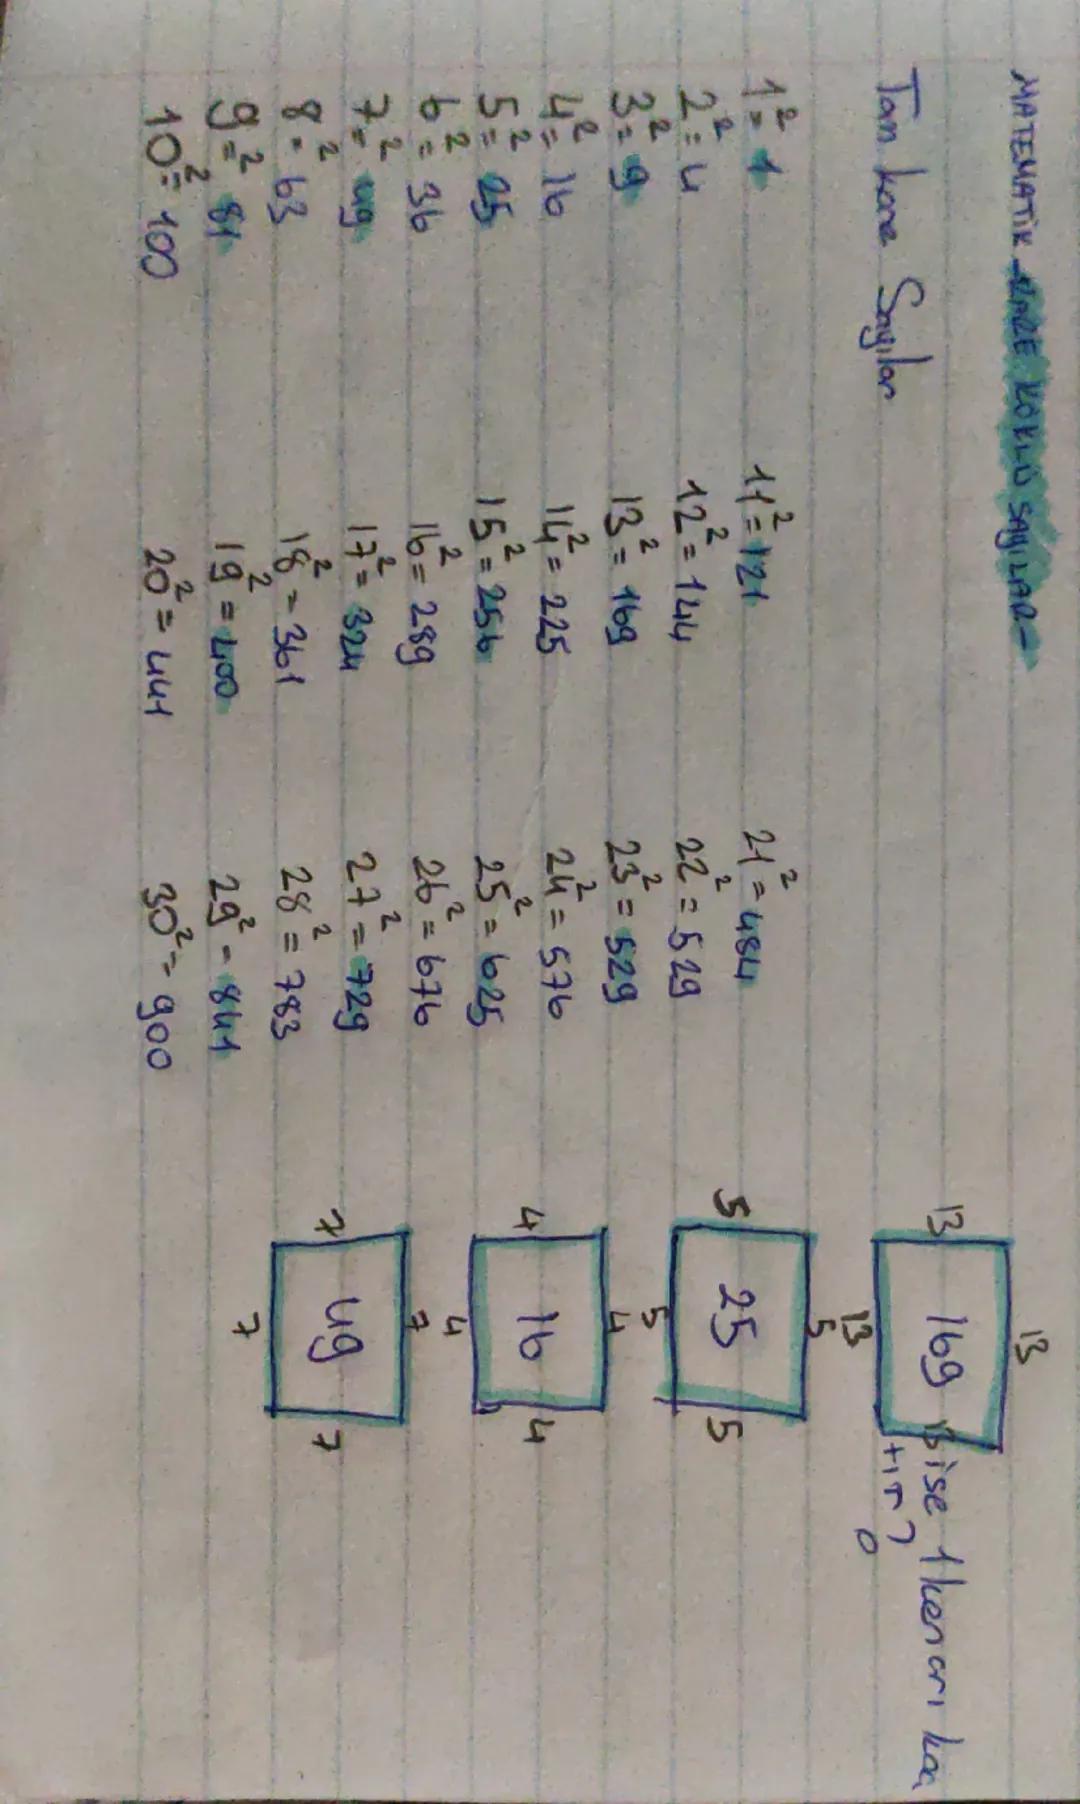 MATEMATİK -KARE KÖKLÜ SAYILAR-
Tam kare Sayılar
1² = 1
2² = 4
3² = 9
4² = 16
5² = 25
6² = 36
7² = 49
8² = 63
9² = 81
10² = 100
11² = 121
12² = 144
13² = 169
14² = 225
15² = 256
16² = 289
17² = 324
18² = 361
19² = 400
20² = 441
21² = 484
22² = 529
23² = 529
24² = 576
25² = 625
26² = 676
27² = 729
28² = 783
29² = 841
30² = 900
13
13 169 13 ise 1 kenarı kaç
13 tır?
5
5 25 5
5
4
4 16 4
4
7
7 49 7
7